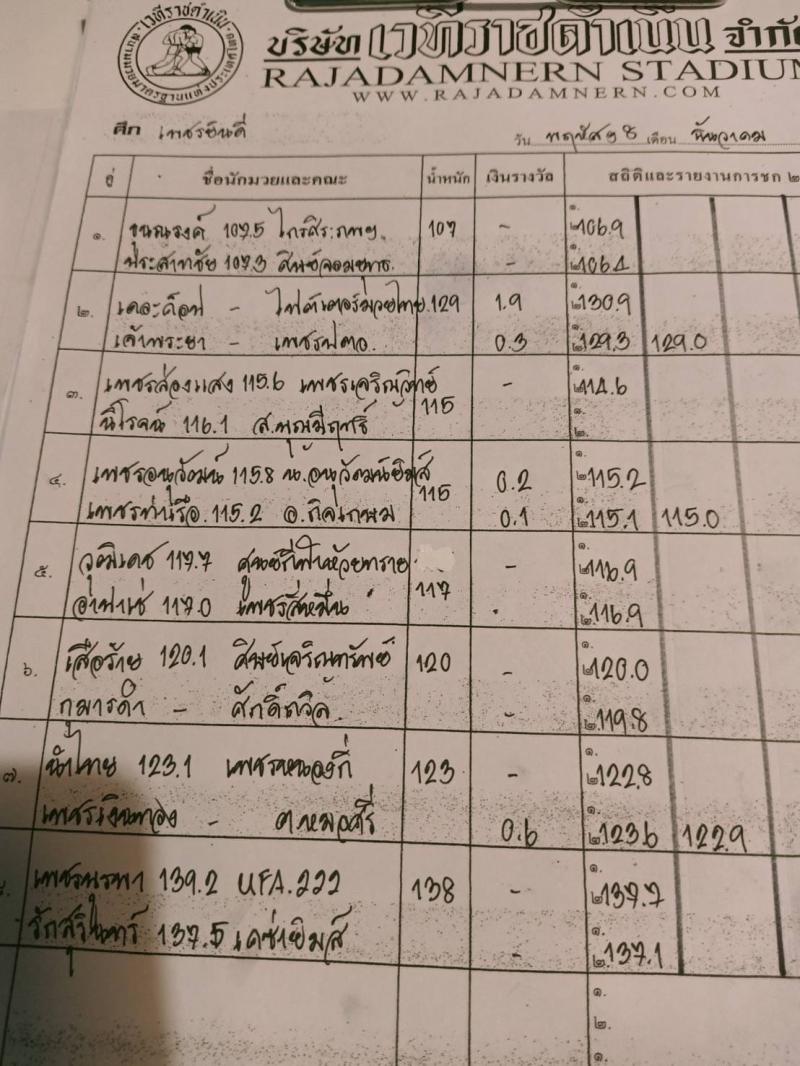 เวทีราชดำเนิน
บริษัท เวทีราชดำเนิน จำกัด
RAJADAMNERN STADIUM
WWW.RAJADAMNERN.COM
ศึก เพชรยินดี
วัน พฤหัสฯ 8 เดือน ธันวาคม
คู่ ชื่อนักมวยและคณะ น้ำหนัก เงินรางวัล สถิติและรายงานการชก ๒
๑. ขุนณรงค์ 107.5 107 - ๑. ๒. 106.9
ประสาทชัย 107.3 - ๑. ๒. 106.1
๒. เดอะค็อป - ไฟต์เตอร์มวยไทย 129 1.9 ๑. ๒. 130.9
เจ้าพระยา - 0.3 ๑. ๒. 129.3 129.0
๓. เพชรส่องแสง 115.6 เพชรเจริญวิทย์ 115 - ๑. ๒. 114.6
นิโรจน์ 116.1 ส.พูนมีฤทธิ์ ๑. ๒.
๔. เพชรอนุวัฒน์ 115.8 น.อนุวัฒน์ยิมส์ 115 0.2 ๑. ๒. 115.2
เพชรท่าเรือ 115.2 0.1 ๑. ๒. 115.1 115.0
๕. วุฒิเดช 117.7 117 - ๑. ๒. 116.9
อาปาเช่ 117.0 เพชรสี่หมื่น ๑. ๒. 116.9
๖. เสือร้าย 120.1 ศิษย์เจริญทรัพย์ 120 - ๑. ๒. 120.0
กุมารดำ - ศักดิ์ถวิล - ๑. ๒. 119.8
๗. น้ำไทย 123.1 เพชรหนองกี่ 123 - ๑. ๒. 122.8
เพชรเงินทอง - ต.หมอศรี 0.6 ๑. ๒. 123.6 122.9
139.2 UFA.222 138 - ๑. ๒. 137.7
รักสุรินทร์ 137.5 เดชายิมส์ - ๑. ๒. 137.1
๑.
๒.
๑.